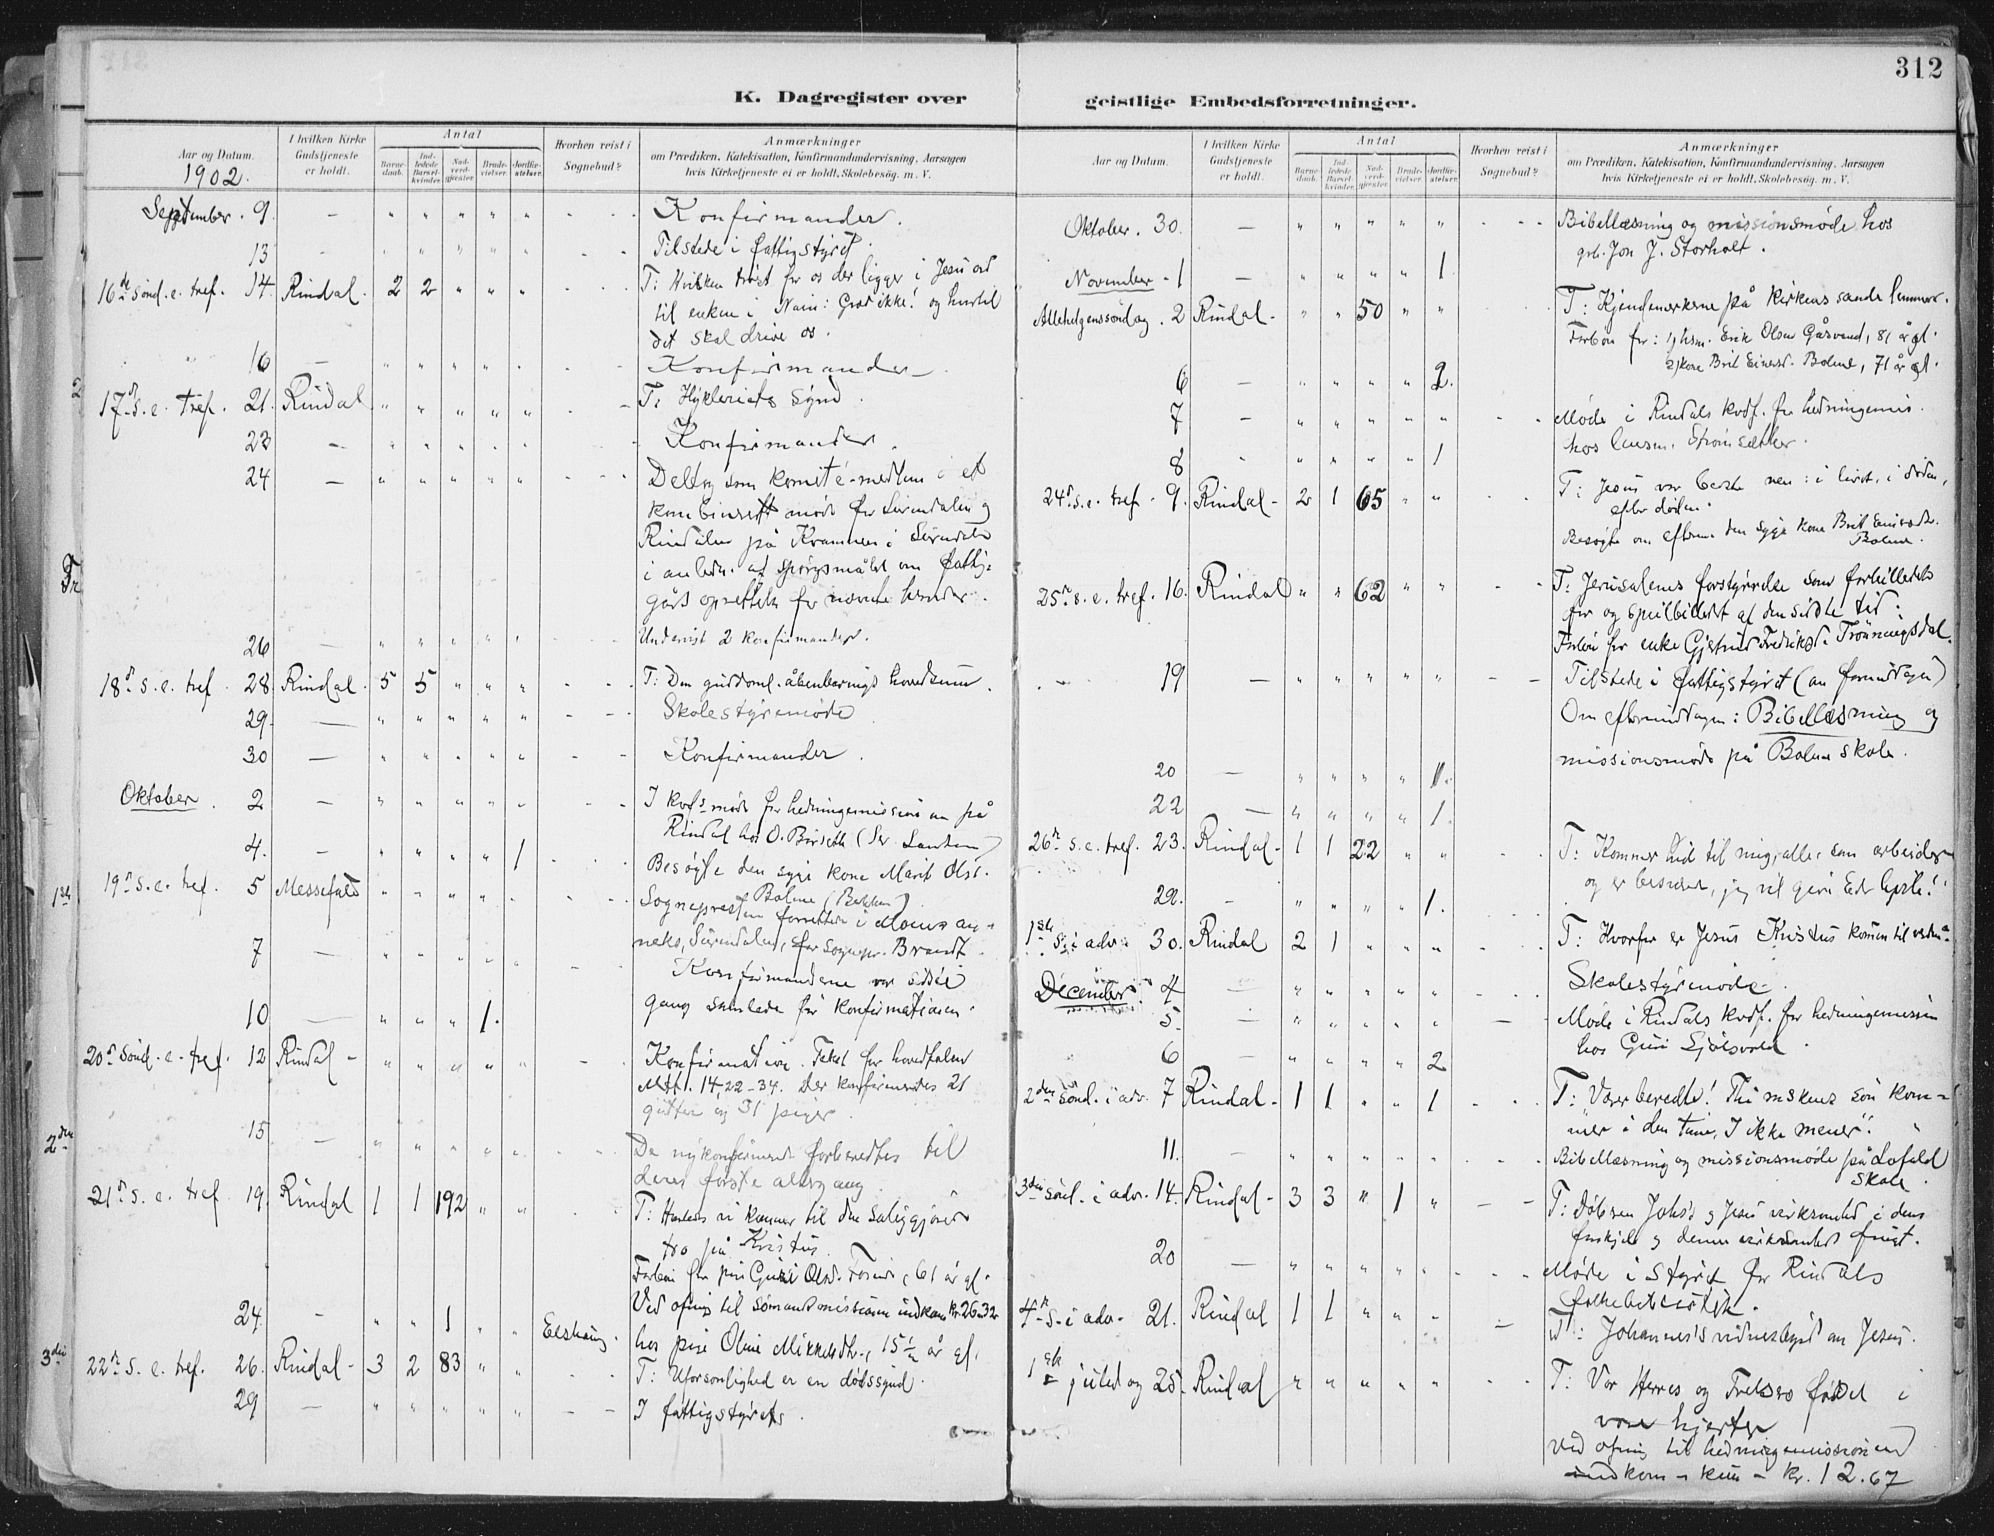 312
K. Dagregister over
geistlige Embedsforretninger.
Aar og Datum.
1902.
I hvilken Kirke Gudstjeneste er holdt.
Antal
Barnedaab.
Indledede Barselkvinder.
Nadverdgjæster.
Brudevielser.
Jordfæstelser.
Hvorhen reist i Sognebud?
Anmærkninger
om Prædiken, Katekisation, Konfirmandundervisning, Aarsagen
hvis Kirketjeneste ei er holdt, Skolebesøg. m. V.
September. 9. – " " " " " Konfirmander.
13 – " " " " " Tilstede i fattigstyret.
16de sönd. e. tref. 14. Rindal. 2 2 " " " T: Hvilken tröst for os der ligger i Jesu ord
til enken i Nain: Græd ikke! og hvortil
det skal drive os.
16 – " " " " " Konfirmander
17de s. e. tref. 21. Rindal " " " " " T: Hykleriets synd.
22 – " " " " " Konfirmander.
24 – " " " " " Deltog som komité-medlem i et
kombineret möde for Surendalen og
Rindalen på Kvammen i Surendalen
i anledn. af spörgsmålet om fattig-
gårs oprettelse for nævnte herreder.
26 – " " " " " Undervist 2 konfirmander.
18de s. e. tref. 28. Rindal. 5 5 " " " T: Den guddoml. åbenbarings hovedsum.
29. – " " " " " Skolestyremöde
30 – " " " " " Konfirmander.
Oktober. 2 – " " " " " I kvdsmöde for hedningemissionen på
Rindal hos O. Börseth
4. – " " " " 1 Besögte den syge kone Marit Olsd.
Bolme (Bakken)
19de s. e. tref. 5 Messefald " " " " " Sognepresten forrettede i Moens an-
neks, Surendalen, for sognepr. Brandt.
7 – " " " " " Konfirmanderne var sidste
gang samlede för konfirmationen.
10 – " " " 1.
20de sönd. e. tref. 12 Rindal – " " " " " Konfirmation. Tekst for hovedtalen
Mtt. 14, 22–34. Der konfirmeredes 21
gutter og 31 piger.
15 – " " " " " De nykonfirmerede forberedtes til
deres förste altergang.
21de s. e. tref. 19. Rindal 1 1 192 " " T: Hvorledes vi kommer til den saliggjörende
tro på Kristus.
Forbön for pige Guri Olsd. Fosnes, 61 år gl.
Ved ofring til sömandsmissionen indkom kr. 26.32
24. – " " 1 " " hos pige Oline Mikkelsdtr., 15½ år gl.
22de s. e. tref. 26. Rindal – 3 2 83 " " T: Uforsonlighed er en dödssynd.
29 – " " " " " I fattigstyret.
Aar og Datum.
I hvilken Kirke Gudstjeneste er holdt.
Antal
Barnedaab.
Indledede Barselkvinder.
Nadverdgjæster.
Brudevielser.
Jordfæstelser.
Hvorhen reist i Sognebud?
Anmærkninger
om Prædiken, Katekisation, Konfirmandundervisning, Aarsagen
hvis Kirketjeneste ei er holdt. Skolebesøg. m. V.
Oktober. 30. – " " " " " Bibellæsning og missionsmöde hos
grb. Jon J. Storholt.
November – 1 – " " " " 1
Allehelgenssöndag. 2 Rindal – " " 50 " " T: Kjendemerkerne på kirkens sande lemmer.
Forbön for: 1) hsm. Erik Olsen Gåsvand, 81 år gl.
2) kone Brit Einersd. Bolme, 71 år gl.
6 – " " " " 2.
7 – " " " " " Möde i Rindals kvdf. for hedningemis.
hos lensm. Strömsæther.
8 " " " " 1
24de s. e. tref. 9. Rindal – 2 1 65 " " T: Jesus vor bedste ven: i livet, i döden,
efter döden.
Besögte om efterm. den syge kone Brit Einersdtr.
Bolme.
25de s. e. tref. 16. Rindal " " 62 " " T: Jerusalems forstyrrelse som forbilledet
for og speilbilledet af den sidste tid.
Forbön for enke Gjertrud Fredriksd. Trönningsdal.
19 – " " " " " Tilstede i fattigstyret (om formiddagen)
Om eftermiddagen: Bibellæsning og
missionsmöde på Bolme skole.
20 – " " " " 1.
22 – " " " " 1.
26de s. e. tref. 23. Rindal – 1 1 22 " " T: Kommer hid til mig, alle som arbeider
og er besværet, jeg vil give Eder hvile!
29. – " " " " 1.
1ste s. i adv. 30. Rindal 2 1 " " " T: Hvorfor er Jesus Kristus kommen til verden?
December. 4 – " " " " " Skolestyremöde.
5. – " " " " " Möde i Rindals kvdf. for hedningemissionen
hos Guri Sjölsvold.
6 – " " " " 2
2den sönd. i adv. 7 Rindal – 1 1 " " 1 T: Værer beredte! Thi mskens sön kom-
mer i den time, I ikke mener.
11. – " " " " " Bibellæsning og missionsmöde på Lofald
skole.
3die sönd. i adv. 14. Rindal – 3 3 " 1 " T: Döberen Johs's og Jesu virksomhed i dens
forskjel og denne virksomheds frugt.
20 – " " " " " Möde i styret for Rindals
folkebibliothek.
4de s. i adv. 21. Rindal 1 1 " " " T: Johannes's vidnesbyrd om Jesus.
1ste juledag 25. Rindal " " " " " T: Vor Herres og Frelsers födsel i
vore hjerter
Ved ofring til hedningemissionen
indkom – kun – kr. 12.67